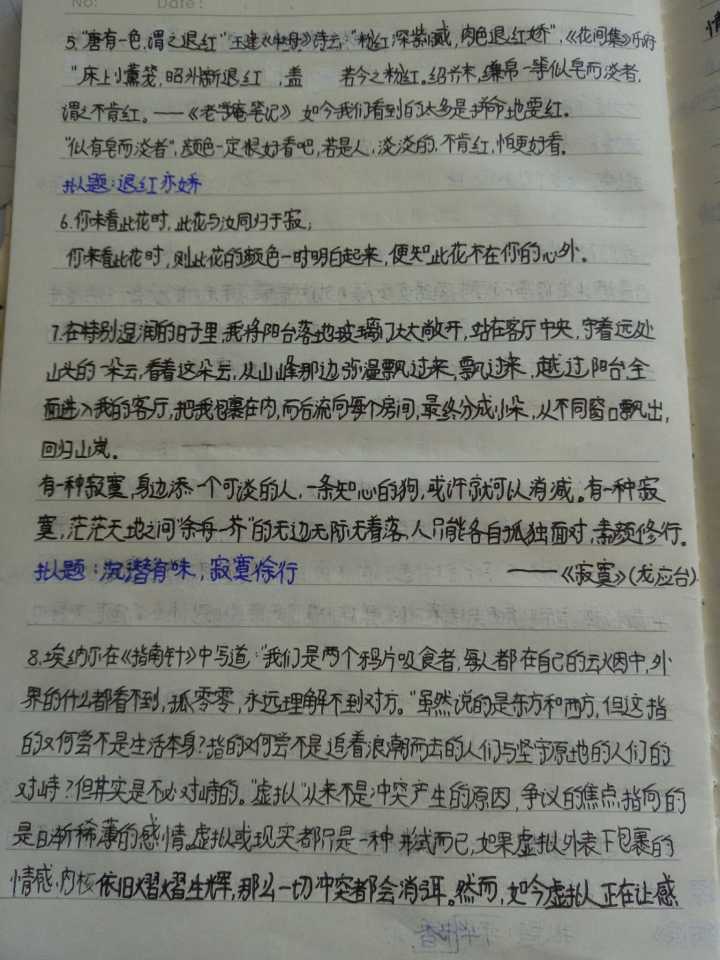 No:
Date:
5."唐有一色,谓之退红"王建《牡丹》诗云:"粉红深紫腻,肉色退红娇",《花间集》乐府
"床上小薰笼,昭州新退红",盖 若今之粉红。绍兴末,缣帛一等似皂而淡者,
谓之不肯红。——《老学庵笔记》 如今我们看到的太多是拼命地要红。
"似有皂而淡者",颜色一定很好看吧,若是人,淡淡的,不肯红,怕更好看。
拟题:退红亦娇
6.你未看此花时,此花与汝同归于寂;
你来看此花时,则此花的颜色一时明白起来,便知此花不在你的心外。
7.在特别湿润的日子里,我将阳台落地玻璃门大大敞开,站在客厅中央,守着远处
山头的一朵云,看着这朵云,从山峰那边弥漫飘过来,飘过来,越过阳台全
面进入我的客厅,把我包裹在内,而后流向每个房间,最终分成小朵,从不同窗口飘出,
回归山岚。
有一种寂寞,身边添一个可谈的人,一条知心的狗,或许就可以消减。有一种寂
寞,茫茫天地之间"余舟一芥"的无边无际无着落,人只能各自孤独面对,素颜修行。
拟题:沉潜有味,寂寞徐行
——《寂寞》(龙应台)
8.埃纳尔在《指南针》中写道:"我们是两个鸦片吸食者,每人都在自己的云烟中,外
界的什么都看不到,孤零零,永远理解不到对方。"虽然说的是东方和西方,但这指
的又何尝不是生活本身?指的又何尝不是追着浪潮而去的人们与坚守原地的人们的
对峙?但其实是不必对峙的。"虚拟"从来不是冲突产生的原因,争议的焦点指向的
是日渐稀薄的感情。虚拟或现实都只是一种形式而已,如果虚拟外表下包裹的
情感内核依旧熠熠生辉,那么一切冲突都会消弭。然而,如今虚拟人正在让感